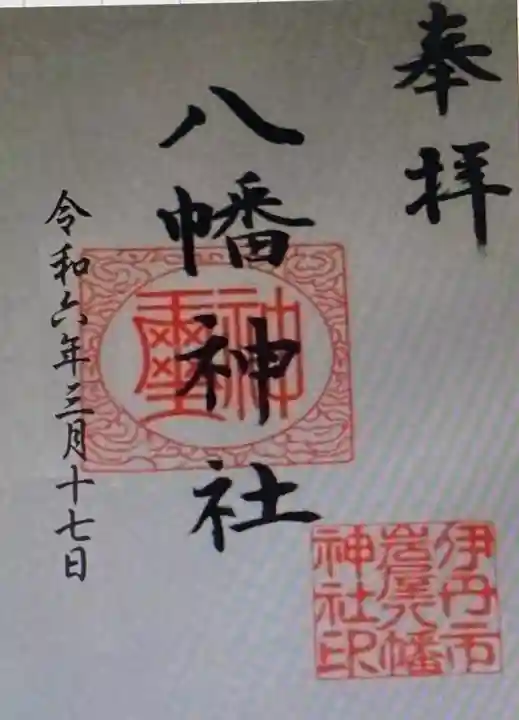 奉拝
八幡神社
神璽
令和六年三月十七日
伊丹市
岩屋八幡
神社印